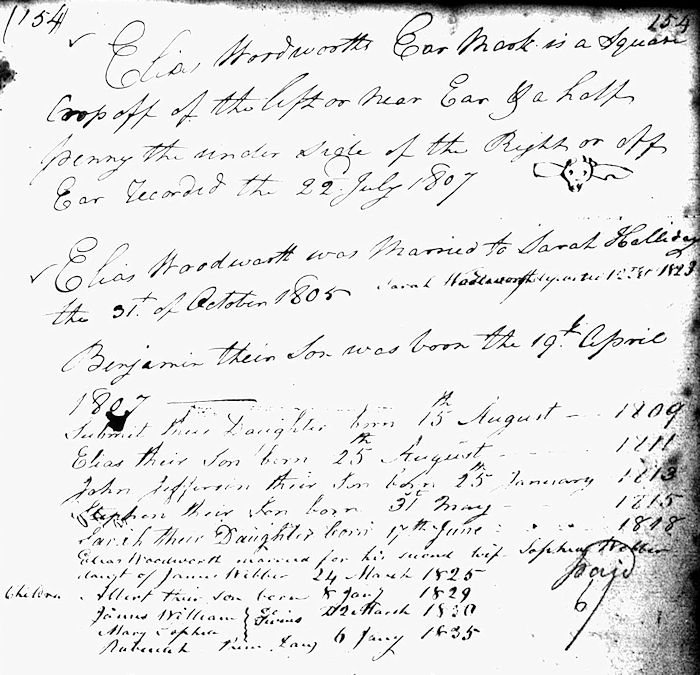 (154 154
Elias Wordworths Ear Mark is a Square
Crop off of the left or near Ear & a half
penny the under side of the Right or off
Ear Recorded the 22d July 1807
Elias Woodworth was Married to Sarah Halliday
the 31t of October 1805 Sarah 1823
Benjamin their Son was born the 19th April
1807
Submit their Daughter born 15th August 1809
Elias their Son born 25th August 1811
John Jefferson their Son born 25th January 1813
Stephen their Son born 31t May 1815
Sarah their Daughter born 17th June 1818
Elias Woodworth married for his second wife Sophia
daugt of James Wilber 24 March 1825 paid
Children Albert their son born 8 Jany 1829 6
James William } Twins 22 March 1830
Mary Sophia
their 6 Jany 1835